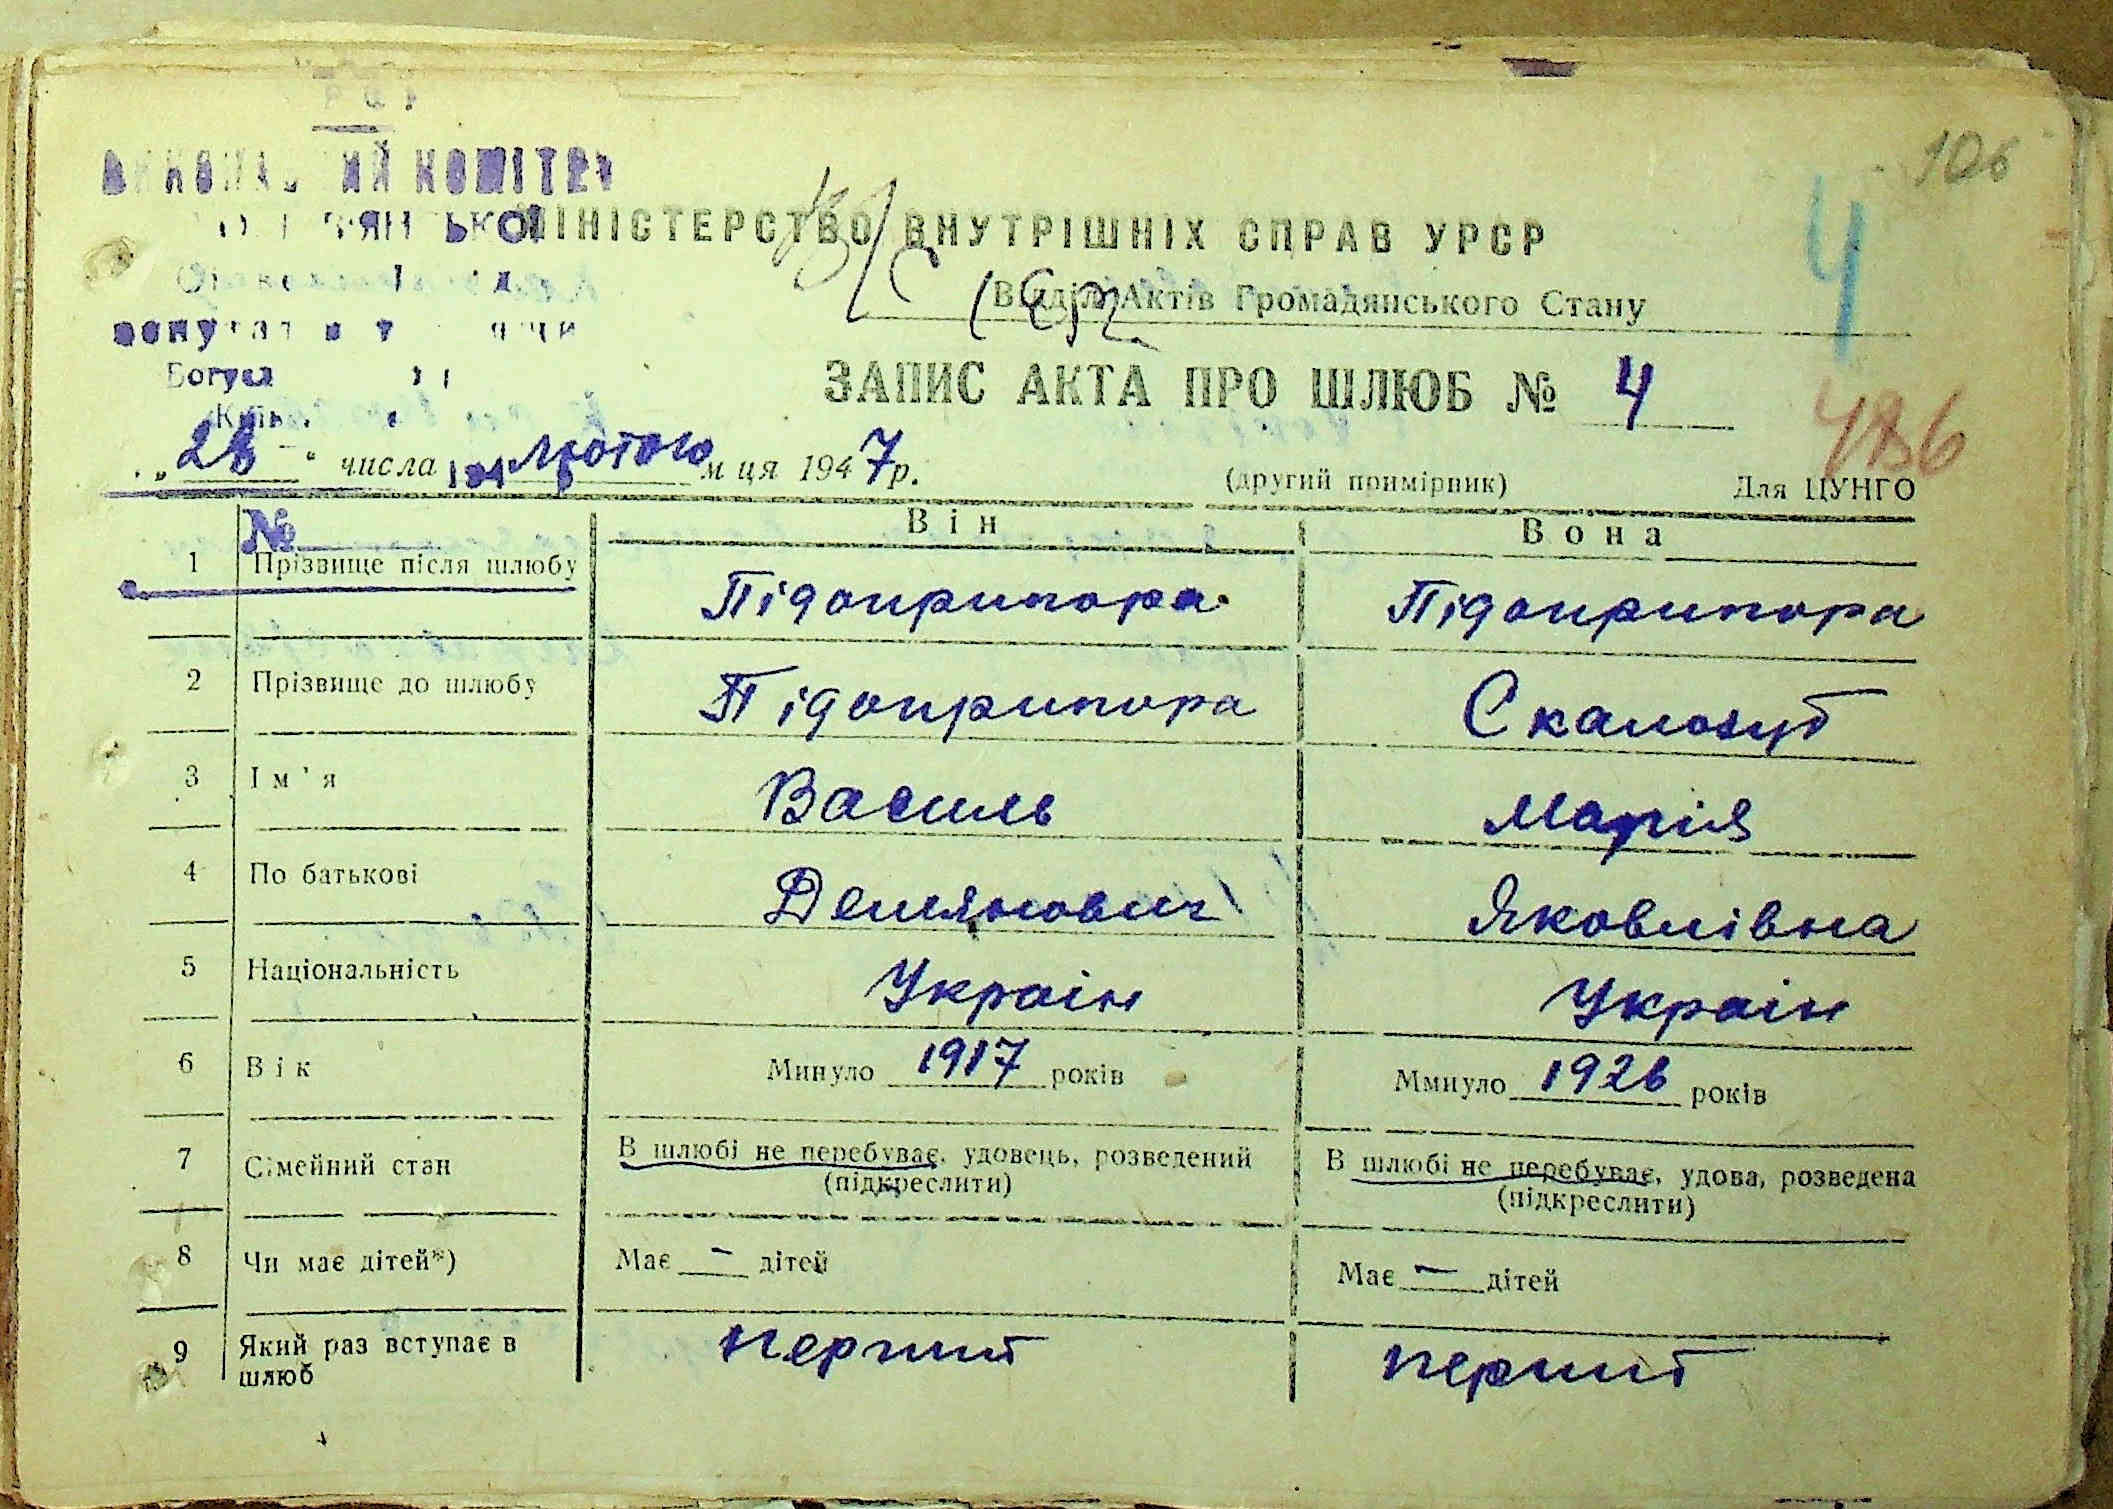 106
МІНІСТЕРСТВО ВНУТРІШНІХ СПРАВ УРСР
4
Відділ Актів Громадянського Стану
ЗАПИС АКТА ПРО ШЛЮБ № 4
486
"28" числа лютого м ця 1947 р.
(другий примірник) Для ЦУНГО
№
Він Вона
1 Прізвище після шлюбу Підоприпора Підоприпора
2 Прізвище до шлюбу Підоприпора Скалозуб
3 Ім'я Василь Марія
4 По батькові Демянович Яковлівна
5 Національність Украін Украін
6 Вік Минуло 1917 років Ммнуло 1926 років
7 Сімейний стан В шлюбі не перебуває, удовець, розведений В шлюбі не перебуває, удова, розведена
(підкреслити) (підкреслити)
8 Чи має дітей*) Має — дітей Має — дітей
9 Який раз вступає в шлюб перший перший